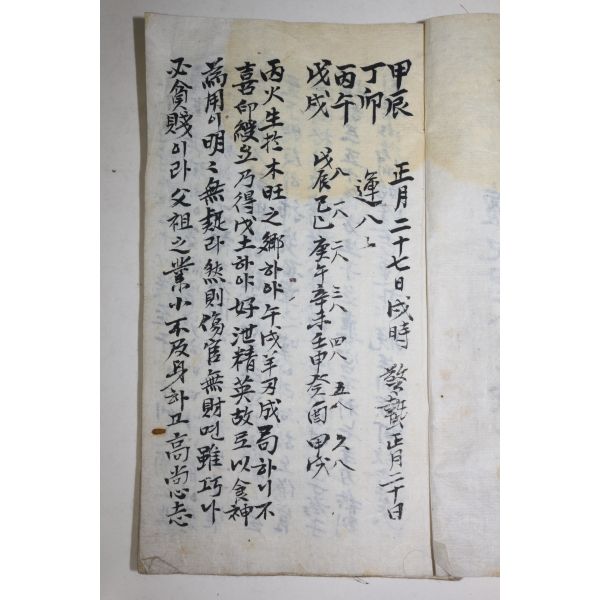 甲辰 正月二十七日戌時 驚蟄正月二十日
丁卯 運八々
丙午 八 一八 二八 三八 四八 五八 六八
戊戌 戊辰 己巳 庚午 辛未 壬申 癸酉 甲戌
丙火生於木旺之鄕하야午戌羊刃成局하니不
喜印綬요乃得戊土하야好泄精英故로以食神
爲用이明々無疑라然則傷官無財면雖巧나
必貪賤이라父祖之業小不及身하고高尙心志